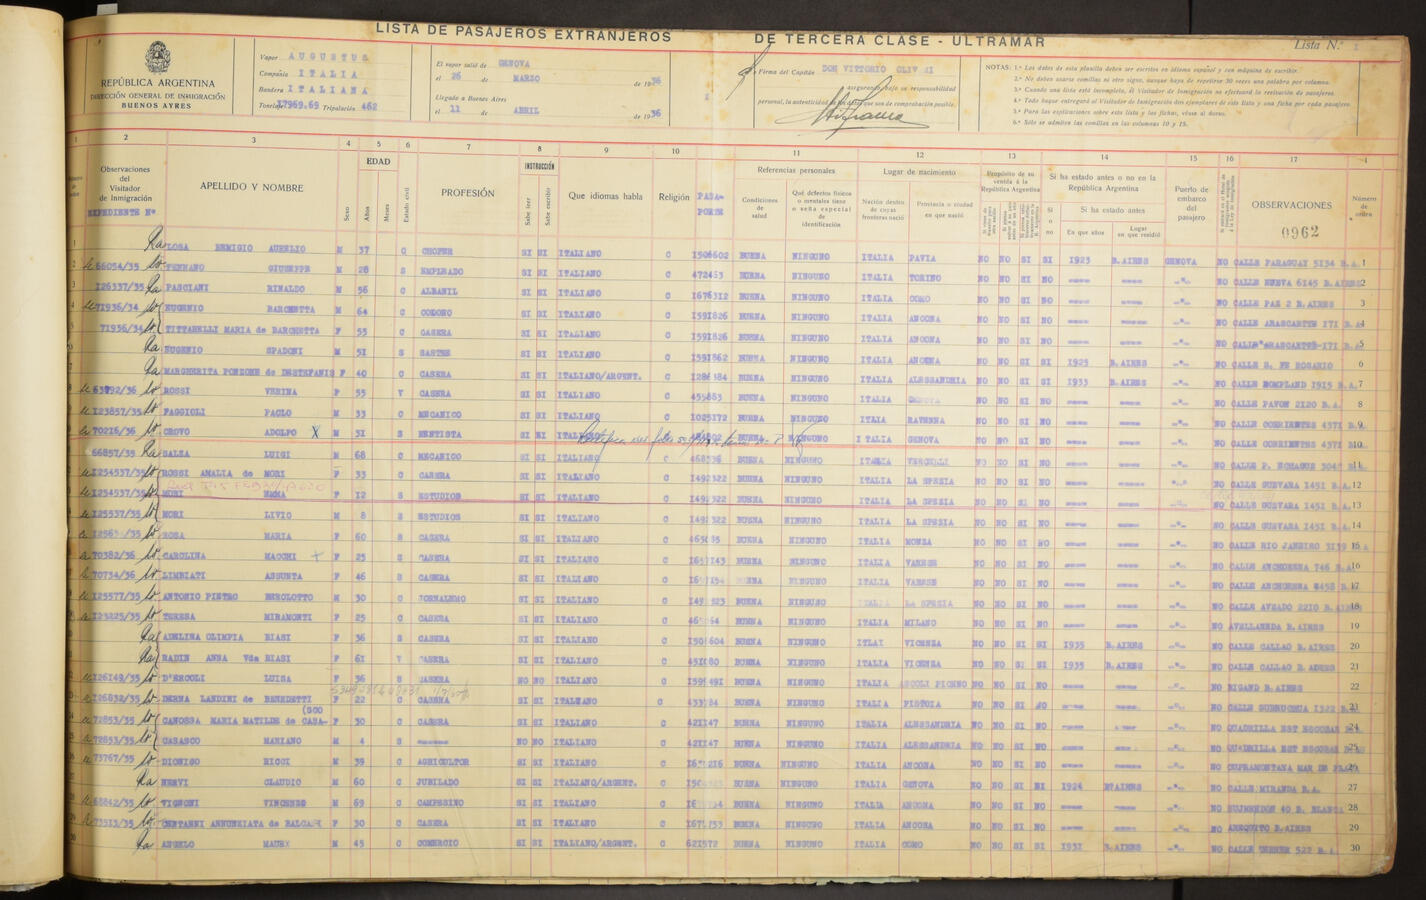 LISTA DE PASAJEROS EXTRANJEROS DE TERCERA CLASE - ULTRAMAR
Lista N.° 1
REPÚBLICA ARGENTINA
DIRECCIÓN GENERAL DE INMIGRACIÓN
BUENOS AIRES
Vapor AUGUSTUS
Compañía ITALIA
Bandera ITALIANA
Tripulación 462
El vapor salió de GENOVA
el 26 de MARZO de 1936
Llegado a Buenos Aires
el 11 de ABRIL de 1936
Firma del Capitán DON VITTORIO
asegurando bajo su responsabilidad
personal, la autenticidad de los datos que son de comprobación posible.
NOTAS: 1.° Los datos de esta planilla deben ser escritos en idioma español y con máquina de escribir.
2.° No deben usarse comillas ni otro signo, aunque haya de repetirse 30 veces una palabra por columna.
3.° Cuando una lista esté incompleta, el Visitador de Inmigración no efectuará la revisación de pasajeros.
4.° Todo buque entregará al Visitador de Inmigración dos ejemplares de esta lista y una ficha por cada pasajero.
5.° Para las explicaciones sobre esta lista y las fichas, véase al dorso.
6.° Sólo se admiten las comillas en las columnas 10 y 15.
1 2 3 4 5 6 7 8 9 10 11 12 13 14 15 16 17 1
Observaciones del Visitador de Inmigración
EXPEDIENTE N°
APELLIDO Y NOMBRE
Sexo
EDAD
Años
Meses
Estado civil
PROFESIÓN
INSTRUCCIÓN
Sabe leer
Sabe escribir
Que idiomas habla
Religión
PASAPORTE
Referencias personales
Condiciones de salud
Qué defectos físicos o mentales tiene o seña especial de identificación
Lugar de nacimiento
Nación dentro de cuyas fronteras nació
Provincia o ciudad en que nació
Propósito de su venida á la República Argentina
Si ha estado antes o no en la República Argentina
Si o no
Si ha estado antes
En que años
Lugar en que residió
Puerto de embarco del pasajero
OBSERVACIONES
0962
Número de orden
LOSA REMIGIO AURELIO M 37 C CHOFER SI SI ITALIANO C 1506602 BUENA NINGUNO ITALIA PAVIA NO NO SI SI 1923 B.AIRES GENOVA NO CALLE PARAGUAY 5134 B.A. 1
66054/35 FERRARO GIUSEPPE M 28 S EMPLEADO SI SI ITALIANO C 472453 BUENA NINGUNO ITALIA TORINO NO NO SI NO NO CALLE NUEVA 6145 B.AIRES 2
126337/35 PASCIANI RINALDO M 56 C ALBANIL SI SI ITALIANO C 1676312 BUENA NINGUNO ITALIA COMO NO NO SI NO NO CALLE PAZ 2 B.AIRES 3
71936/34 EUGENIO BARCHETTA M 64 C SI SI ITALIANO C 1591826 BUENA NINGUNO ITALIA ANCONA NO NO SI NO NO CALLE 171 B.A. 4
71936/34 TITTARELLI MARIA de BARCHETTA F 55 C CASERA SI SI ITALIANO C 1591826 BUENA NINGUNO ITALIA ANCONA NO NO SI NO NO CALLE 171 B.A. 5
EUGENIO SPADONI M 51 S SASTRE SI SI ITALIANO C 1591862 BUENA NINGUNO ITALIA ANCONA NO NO SI SI 1925 B.AIRES NO CALLE S. FE ROSARIO 6
MARGHERITA PONZONE de DESTEFANIS F 40 C CASERA SI SI ITALIANO/ARGENT. C BUENA NINGUNO ITALIA ALESSANDRIA NO NO SI SI 1933 B.AIRES NO CALLE BOMPLAND 1915 B.A. 7
63792/36 ROSSI VERINA F 55 V CASERA SI SI ITALIANO C 455863 BUENA NINGUNO ITALIA GENOVA NO NO SI NO NO CALLE PAVON 2120 B.A. 8
123857/35 FAGGIOLI PAOLO M 33 C MECANICO SI SI ITALIANO C 1025172 BUENA NINGUNO ITALIA RAVENNA NO NO SI NO NO CALLE CORRIENTES 4371 B. 9
70216/36 CROVO ADOLFO X M 31 S DENTISTA SI SI BUENA NINGUNO ITALIA GENOVA NO NO SI NO NO CALLE CORRIENTES 4371 B. 10
66857/35 BALZA LUIGI M 68 C MECANICO SI SI ITALIANO C 468336 BUENA NINGUNO ITALIA VERCELLI NO NO SI NO NO CALLE P. ECHAGUE 3042 11
125537/35 ROSSI AMALIA de MORI F 33 C CASERA SI SI ITALIANO C 1492322 BUENA NINGUNO ITALIA LA SPEZIA NO NO SI NO NO CALLE GUEVARA 1451 B.A. 12
125537/35 MORI EMMA F 12 S ESTUDIOS SI SI ITALIANO C 1492322 BUENA NINGUNO ITALIA LA SPEZIA NO NO SI NO NO CALLE GUEVARA 1451 B.A. 13
125537/35 MORI LIVIO M 8 S ESTUDIOS SI SI ITALIANO C 1492322 BUENA NINGUNO ITALIA LA SPEZIA NO NO SI NO NO CALLE GUEVARA 1451 B.A. 14
ROSA MARIA F 60 S CASERA SI SI ITALIANO C BUENA NINGUNO ITALIA MONZA NO NO SI NO NO CALLE RIO JANEIRO 15
70382/36 CAROLINA MACCHI X F 25 S CASERA SI SI ITALIANO C BUENA NINGUNO ITALIA VARESE NO NO SI NO NO CALLE ANCHORENA 746 B.A. 16
70734/36 LIMBIATI ASSUNTA F 46 S CASERA SI SI ITALIANO C BUENA NINGUNO ITALIA VARESE NO NO SI NO NO CALLE ANCHORENA 17
125577/35 ANTONIO PIETRO BEROLOTTO M 30 C JORNALERO SI SI ITALIANO C BUENA NINGUNO ITALIA LA SPEZIA NO NO SI NO NO CALLE 2210 B. 18
123225/35 TERESA MIRAMONTI F 25 C CASERA SI SI ITALIANO C BUENA NINGUNO ITALIA MILANO NO NO SI NO NO AVELLANEDA B.AIRES 19
ADELINA OLIMPIA BIASI F 36 S CASERA SI SI ITALIANO C BUENA NINGUNO ITLAI VICENZA NO NO SI SI 1935 B.AIRES NO CALLE CALLAO B.AIRES 20
RADIN ANNA Vda BIASI F 61 V CASERA SI SI ITALIANO C 451080 BUENA NINGUNO ITALIA VICENZA NO NO SI SI 1935 B.AIRES NO CALLE CALLAO B.AIRES 21
126149/35 D'ERCOLI LUISA F 36 S CASERA NO NO ITALIANO C 1595491 BUENA NINGUNO ITALIA ASCOLI PICENO NO NO SI NO NO BIGAND B.AIRES 22
126832/35 DERNA LANDINI de BENEDETTI F 22 C CASERA SI SI ITALIANO C BUENA NINGUNO ITALIA PISTOIA NO NO SI NO NO CALLE 1322 B. 23
72853/35 CANOSSA MARIA MATILDE de CASA- (SCO F 30 C CASERA SI SI ITALIANO C 421147 BUENA NINGUNO ITALIA ALESSANDRIA NO NO SI NO NO QUADRILLA EST ESCOBAR 24
72853/35 CASASCO MARIANO M 4 S NO NO ITALIANO C 421147 BUENA NINGUNO ITALIA ALESSANDRIA NO NO SI NO NO QUADRILLA EST ESCOBAR 25
73767/35 DIONISO RICCI M 39 C AGRICULTOR SI SI ITALIANO C BUENA NINGUNO ITALIA ANCONA NO NO SI NO NO CUPRAMONTANA MAR DE PLATA 26
NERVI CLAUDIO M 60 C JUBILADO SI SI ITALIANO/ARGENT. C BUENA NINGUNO ITALIA GENOVA NO NO SI SI 1924 B.AIRES NO CALLE MIRANDA B.A. 27
68842/35 VIGNONI VINCENZO M 69 C CAMPESINO SI SI ITALIANO C BUENA NINGUNO ITALIA ANCONA NO NO SI NO 40 B. BLANCA 28
73513/35 ANNUNZIATA de F 30 C CASERA SI SI ITALIANO C BUENA NINGUNO ITALIA ANCONA NO NO SI NO NO AREQUITO B.AIRES 29
ANGELO MAURX M 45 C COMERCIO SI SI ITALIANO/ARGENT. C 621572 BUENA NINGUNO ITALIA COMO NO NO SI SI 1931 B.AIRES NO CALLE 522 B.A. 30